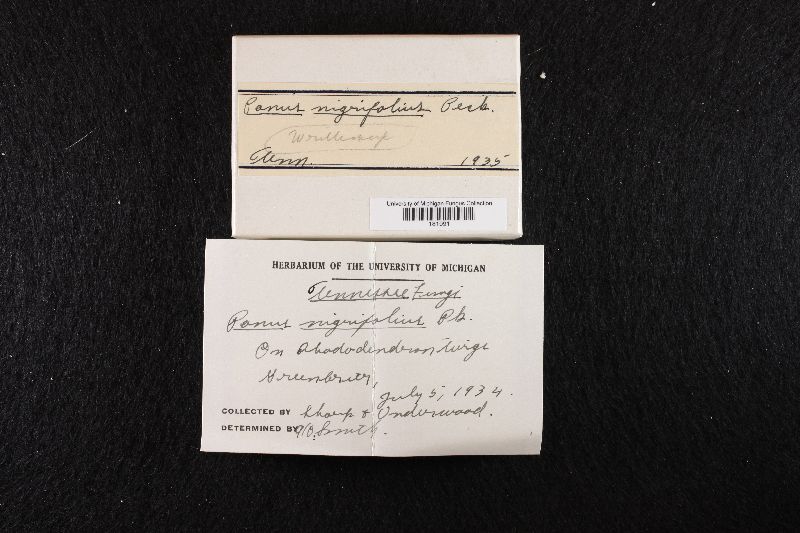 Panus nigrifolius Peck.
Tenn. 1935
University of Michigan Fungus Collection
181091
HERBARIUM OF THE UNIVERSITY OF MICHIGAN
Tennessee Fungi
Panus nigrifolius Pk.
On Rhododendron twigs
Greenbrier,
July 5, 1934.
COLLECTED BY Sharp & Underwood.
DETERMINED BY Smith.